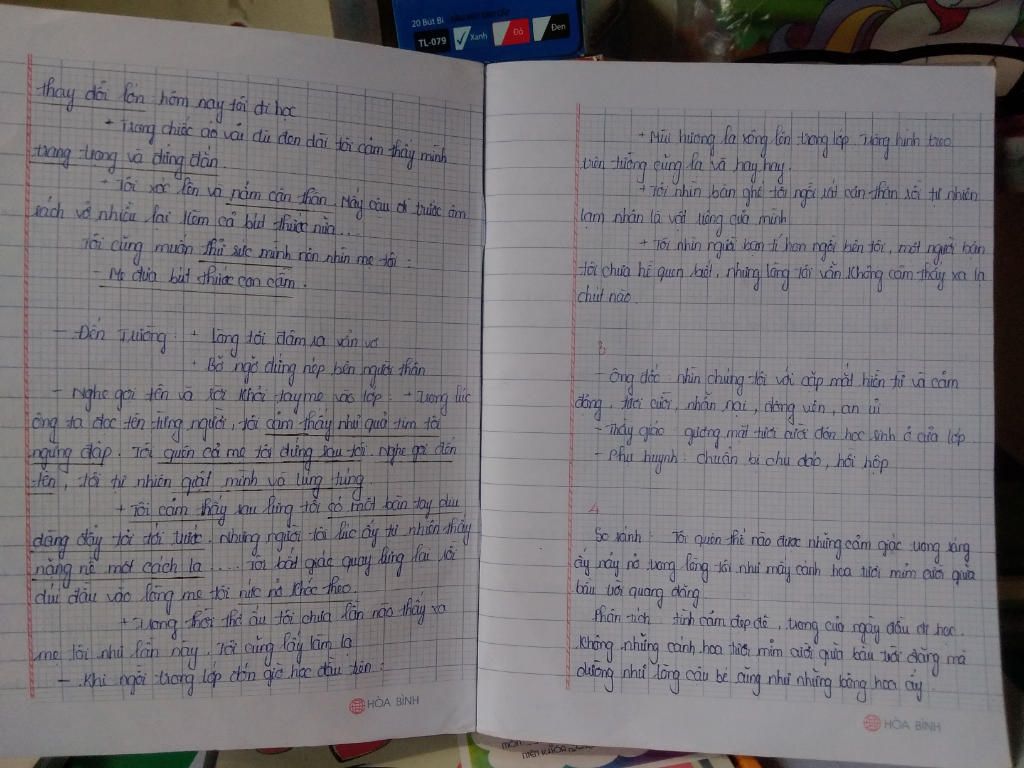 20 Bút Bi
TL-079
Xanh
Đỏ
Đen
thay đổi lớn hôm nay tôi đi học
+ Trong chiếc áo vải dù đen dài tôi cảm thấy mình
trang trọng và đứng đắn.
+ Tôi xóc lên và nắm cẩn thận. Mấy cậu đi trước ôm
sách vở nhiều lại kèm cả bút thước nữa...
Tôi cũng muốn thử sức mình nên nhìn mẹ tôi:
- Mẹ đưa bút thước con cầm.
- Đến Trường: + lòng tôi đâm ra vẩn vơ
+ Bỡ ngỡ đứng nép bên người thân
- Nghe gọi tên và rời khỏi tay mẹ vào lớp: + Trong lúc
ông ta đọc tên từng người, tôi cảm thấy như quả tim tôi
ngừng đập. Tôi quên cả mẹ tôi đứng sau tôi. Nghe gọi đến
tên, tôi tự nhiên giật mình và lúng túng
+ Tôi cảm thấy sau lưng tôi có một bàn tay dịu
dàng đẩy tôi tới trước. Nhưng người tôi lúc ấy tự nhiên thấy
nặng nề một cách lạ..... Tôi bất giác quay lưng lại rồi
dúi đầu vào lòng mẹ tôi nức nở khóc theo.
+ Trong thời thơ ấu tôi chưa lần nào thấy xa
mẹ tôi như lần này. Tôi cũng lấy làm lạ
- Khi ngồi trong lớp đón giờ học đầu tiên:
HÒA BÌNH
+ Mùi hương lạ xông lên trong lớp. Trông hình treo
trên tường cũng lạ và hay hay.
+ Tôi nhìn bàn ghế tôi ngồi rất cẩn thận rồi tự nhiên
lạm nhận là vật riêng của mình
+ Tôi nhìn người bạn tí hon ngồi bên tôi, một người bạn
tôi chưa hề quen biết, nhưng lòng tôi vẫn không cảm thấy xa lạ
chút nào.
3
- ông đốc nhìn chúng tôi với cặp mắt hiền từ và cảm
động, tươi cười, nhẫn nại, động viên, an ủi
- Thầy giáo gương mặt tươi cười đón học sinh ở cửa lớp
- Phụ huynh: chuẩn bị chu đáo, hồi hộp
4
So sánh: Tôi quên thế nào được những cảm giác trong sáng
ấy nảy nở trong lòng tôi như mấy cành hoa tươi mỉm cười giữa
bầu trời quang đãng.
Phân tích tình cảm đẹp đẽ, trong của ngày đầu đi học.
Không những cánh hoa tươi mỉm cười giữa bầu trời đãng mà
dường như lòng cậu bé cũng như những bông hoa ấy.
HÒA BÌNH